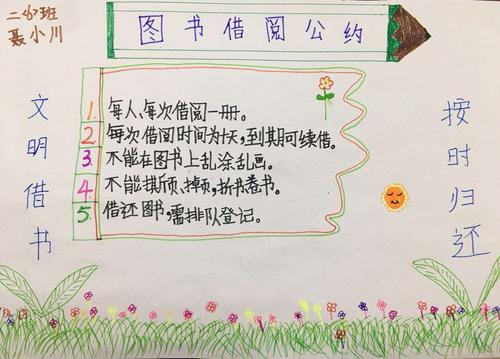 二 班
聂小川
图书借阅公约
文明借书
1. 每人、每次借阅一册。
2. 每次借阅时间为十天,到期可续借。
3. 不能在图书上乱涂乱画。
4. 不能撕页、掉页,折书卷书。
5. 借还图书,需排队登记。
按时归还